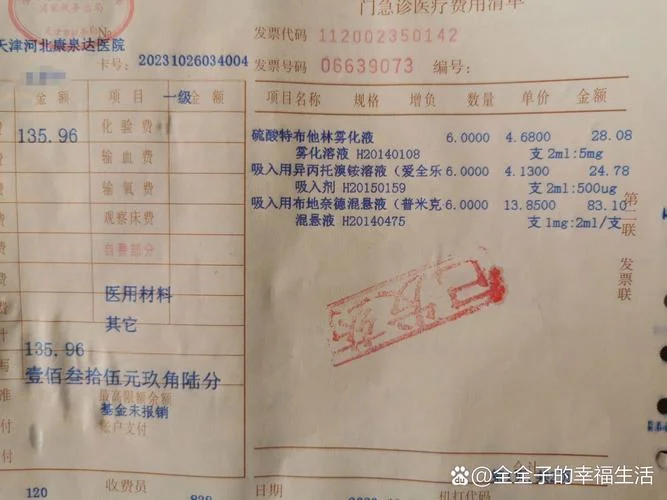 门急诊医疗费用清单
No
天津河北康泉达医院
发票代码 112002350142
卡号: 20231026034004
发票号码 06639073 编号:
金额 项目 一级 金额
项目名称 规格 增负 数量 单价 金额
135.96 化验费
硫酸特布他林雾化液 6.0000 4.6800 28.08
输血费
雾化溶液 H20140108 支2ml:5mg
输氧费
吸入用异丙托溴铵溶液(爱全乐 6.0000 4.1300 24.78
吸入剂 H20150159 支2ml:500ug
观察床费
吸入用布地奈德混悬液(普米克 6.0000 13.8500 83.10
混悬液 H20140475 支1mg:2ml/支
自费部分
第二联 发票联
医用材料
其它
已发药
135.96
壹佰叁拾伍元玖角陆分
最高限额余额
基金未报销
付 帐户支付
120 收费员
日期
机打代码
全全子的幸福生活